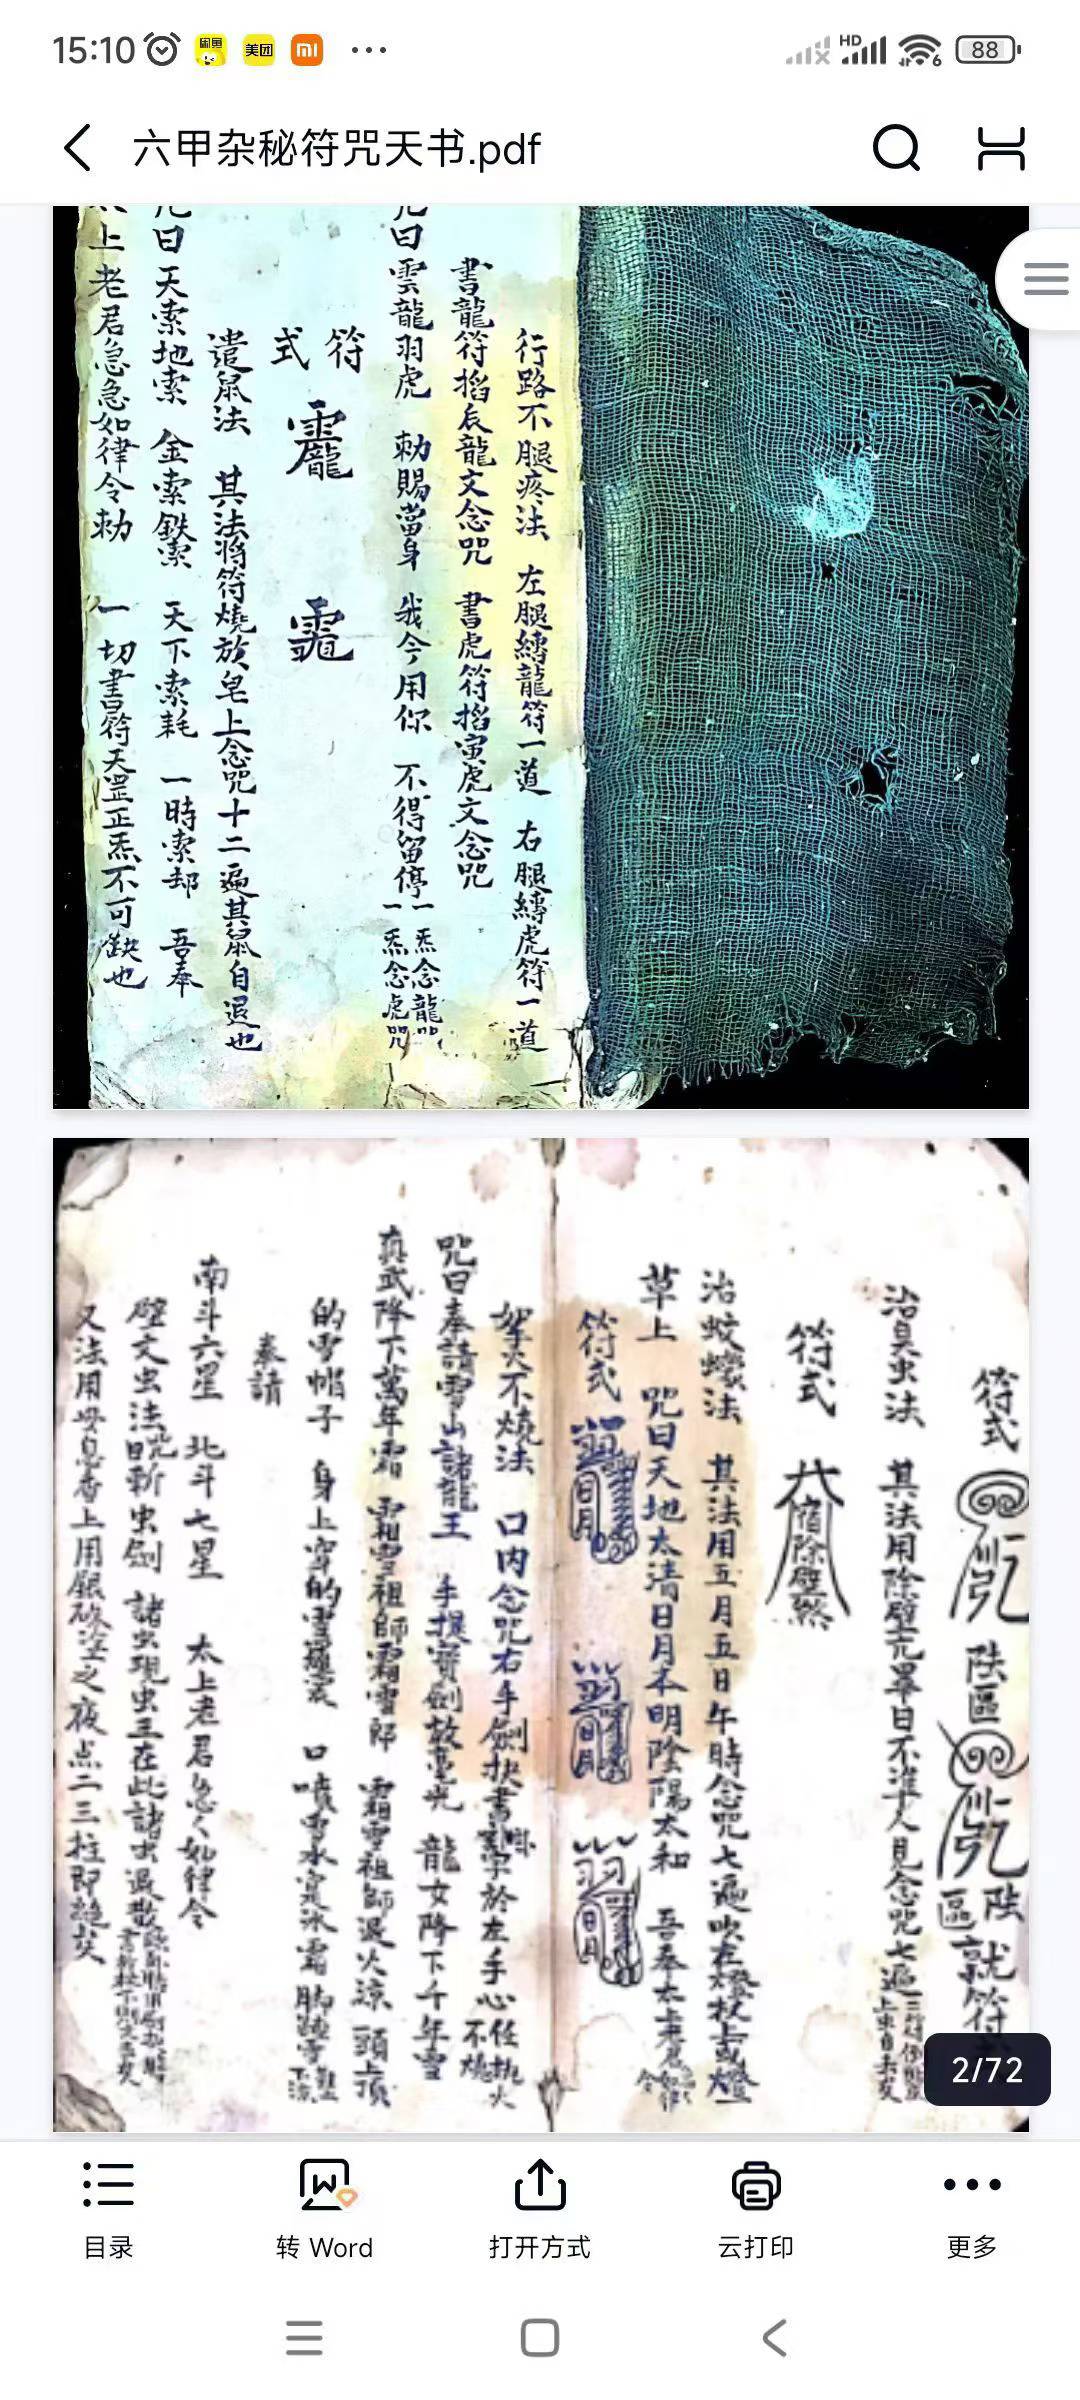 15:10
闲鱼
美团
HD
6
88
六甲杂秘符咒天书.pdf
行路不腿疼法 左腿縛龍符一道 右腿縛虎符一道
書龍符掐辰龍文念咒 書虎符掐寅虎文念咒
曰雲龍羽虎 勅賜當身 我今用你 不得留停 一炁念龍咒 一炁念虎咒
符式
遣鼠法 其法將符燒放皂上念咒十二遍其鼠自退也
曰天索地索 金索鉄索 天下索耗 一時索却 吾奉
上老君急急如律令勅 一切書符天罡正炁不可缺也
符式
治臭虫法 其法用除壁元畢日不準人見念咒七遍
符式
治蚊蠓法 其法用五月五日午時念咒七遍吹在燈杖上或燈
草上 咒曰天地太清日月本明陰陽太和 吾奉太上老君
符式
不燒法 口内念咒右手劍抉書字於左手心任执火不燒
咒曰奉請雪山諸龍王 手提寶劍放毫光 龍女降下千年雪
真武降下萬年霜 霜雪祖師霜雪郎 霜雪祖師退火涼 頭上頂
的雪帽子 身上穿的雪 口噴雪水寒冰霜 脚
奉請
南斗六星 北斗七星 太上老君急急如律令
壁文虫法咒曰斬虫劍 諸虫現虫王在此諸虫退散
又法用安息香上用銀硃 之夜点二三柱即
2/72
目录
转 Word
打开方式
云打印
更多